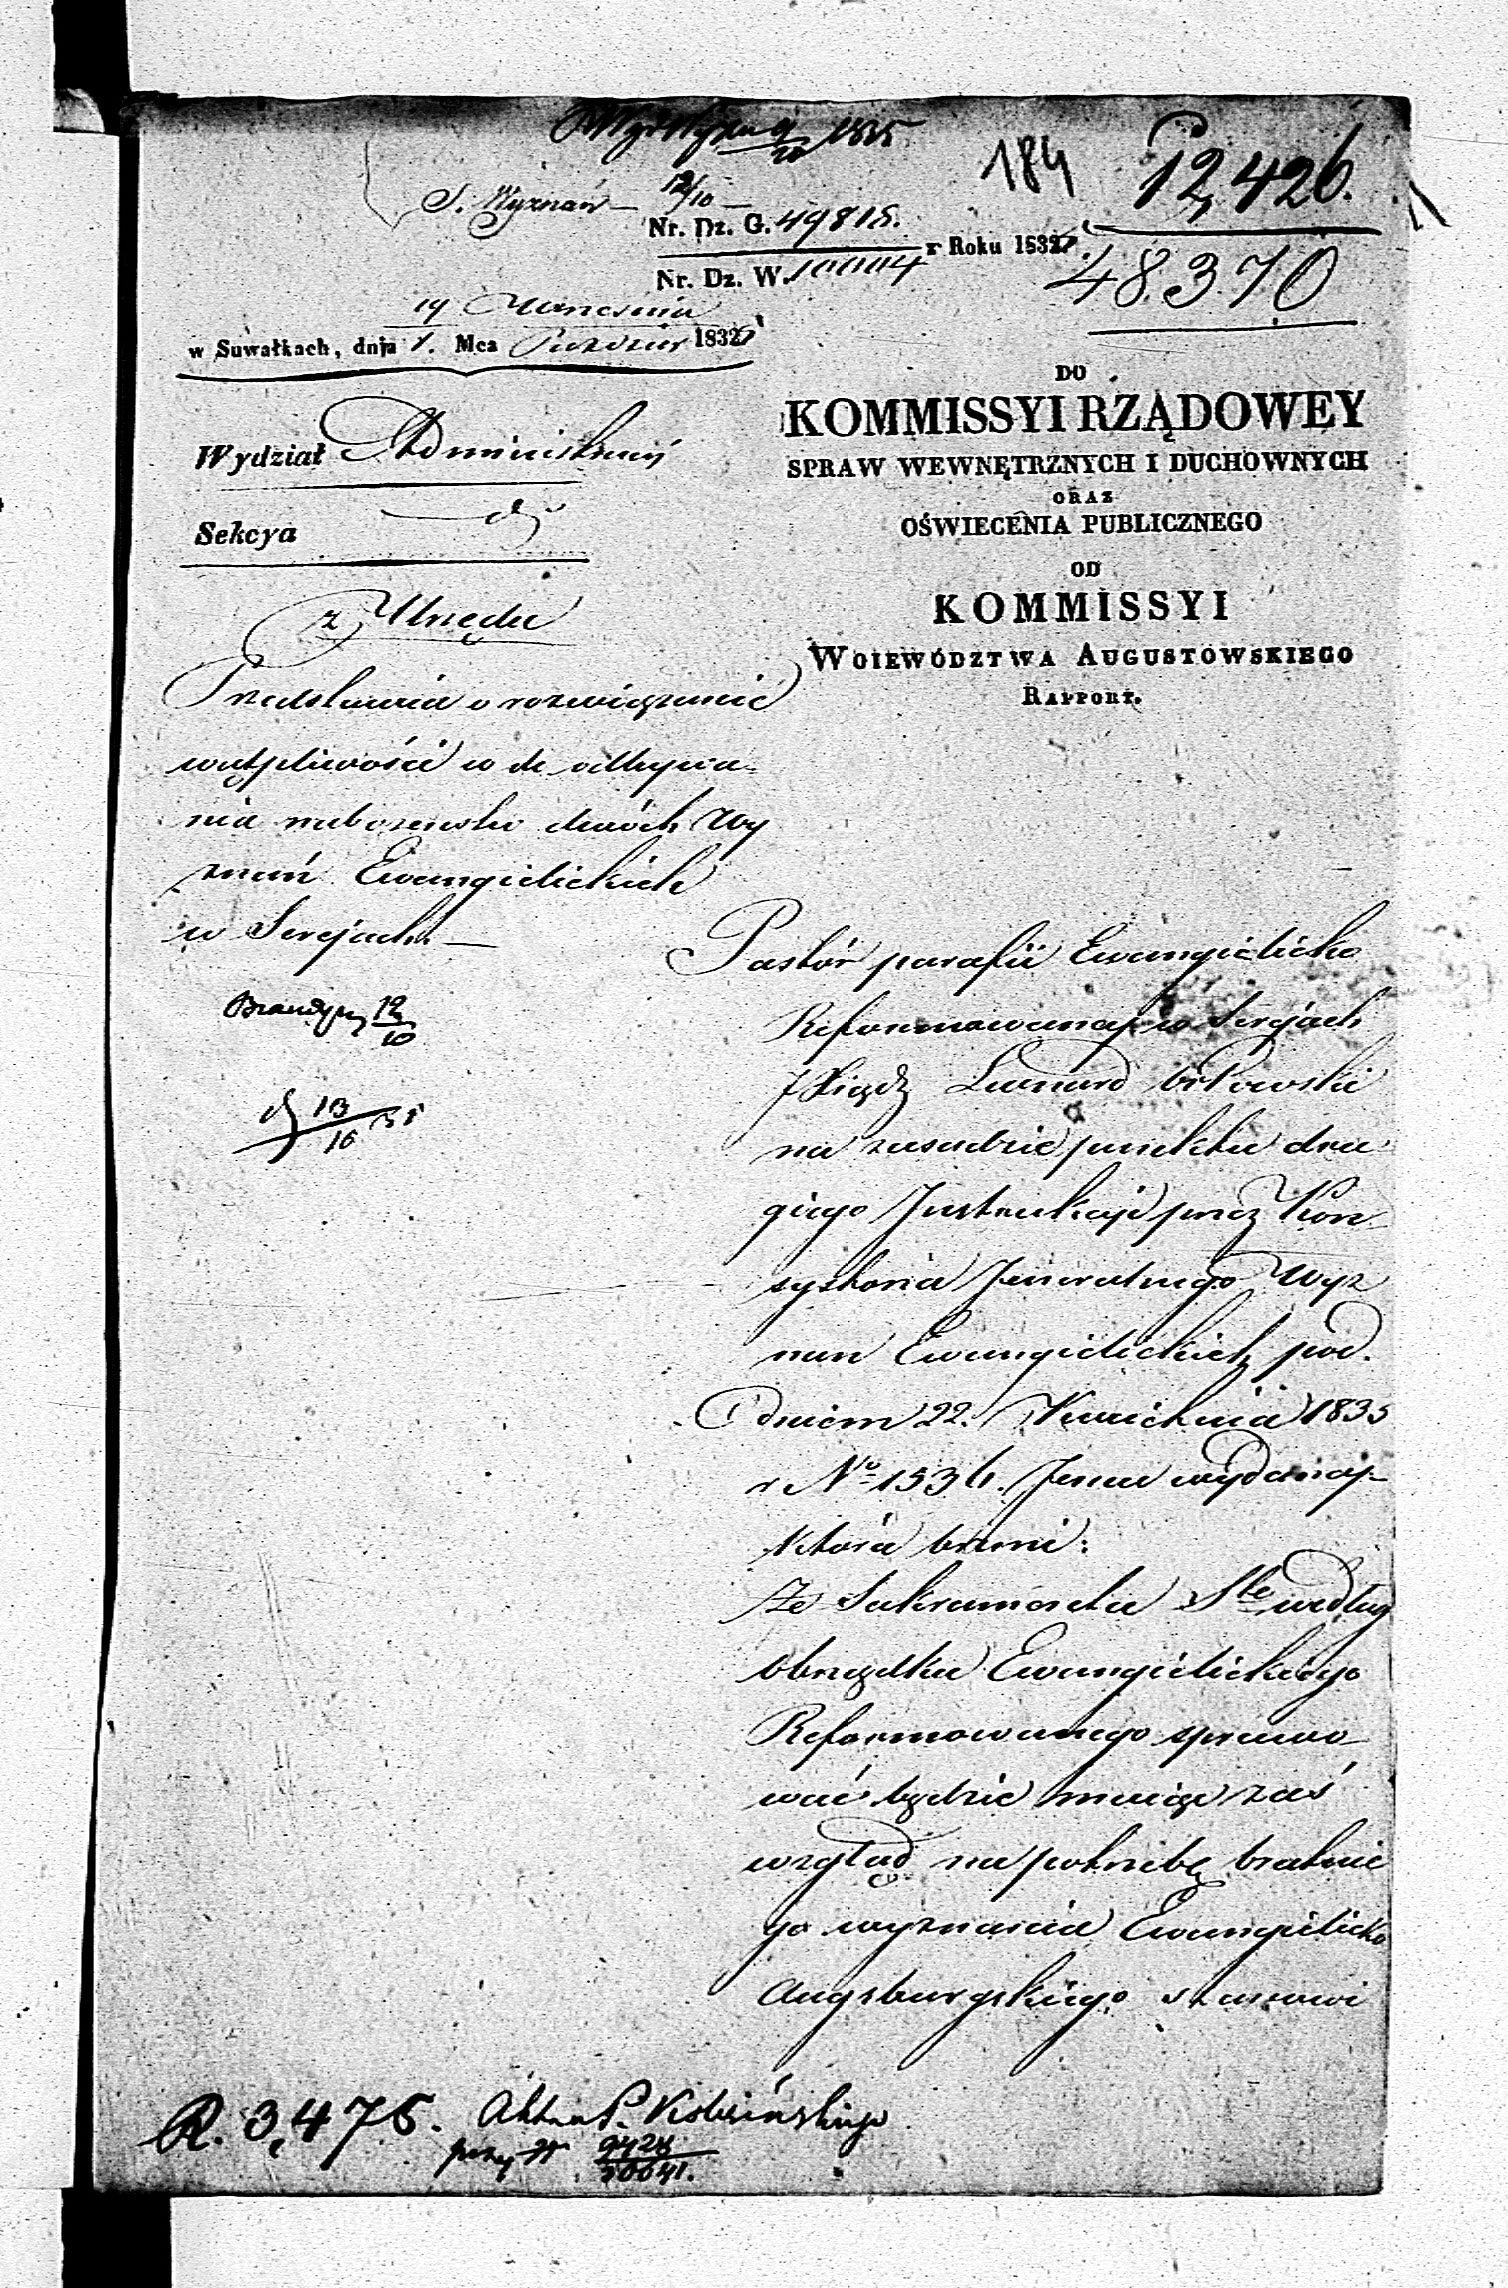 1835
S. Wyznań 12/10
184
12,426.
48370
Nr. Dz. G. 49815.
z Roku 1832
Nr. Dz. W. 10004
19 Września
w Suwałkach, dnia 1. Mca Paździer 1832
DO
KOMMISSYI RZĄDOWEY
SPRAW WEWNĘTRZNYCH I DUCHOWNYCH
ORAZ
OŚWIECENIA PUBLICZNEGO
OD
KOMMISSYI
WOIEWÓDZTWA AUGUSTOWSKIEGO
RAPPORT.
Wydział Administracyi
Sekcya
z Urzędu
Przedstawia o rozwiązanie
wątpliwości w de odbywa-
nia nabożeństw dwóch Wy
znań Ewangielickich
w Serejach
12/10
13/10 35
Pastór parafii Ewangielicko
Reformowanej w Serejach
Xiądz Leonard Orłowski
na zasadzie punktu dru
giego Instrukcyi przez Kon
systorza Jeneralnego Wyz
nan Ewangielickich pod
dniem 22. Kwietnia 1835
r No 1536. Jemu wydanej
która brzmi:
że Sakramenta Ste według
obrządku Ewangielickiego
Reformowanego sprawo
wać będzie maiąc zaś
wzgląd na potrzebę bratnie
go wyznania Ewangielicko
Augsburgskiego stanowi
R. 3,475.
Akta P. Kobusińskiego
przy Nr 9428